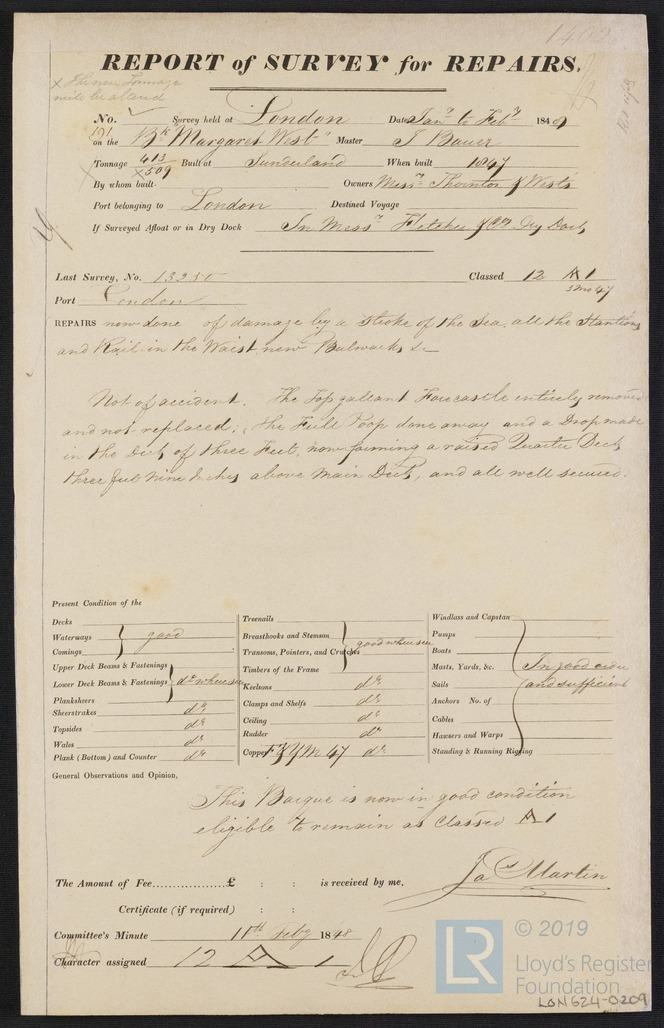 1402
REPORT of SURVEY for REPAIRS.
x The new Tonnage
will be altered
No. 191 Survey held at London Date Jany to Feby 1848
on the Bk "Margaret West" Master J Bauer
Tonnage 413 x509 Built at Sunderland When built 1847
By whom built Owners Messrs Thornton & West's
Port belonging to London Destined Voyage
If Surveyed Afloat or in Dry Dock In Messrs Fletcher & Co. Dry Dock
Last Survey, No. 13250 Classed 12 A 1
3mo 47
Port London
REPAIRS now done of damage by a stroke of the Sea, all the Stantions
and Rail in the Waist new Bulwarks &c
Not of accident. The Topgallant Forecastle entirely removed
and not replaced, the Full Poop done away and a Drop made
in the Deck of three Feet, now forming a raised Quarter Deck
three feet nine Inches above Main Deck, and all well secured.
Present Condition of the
Decks
Waterways good
Comings
Upper Deck Beams & Fastenings
Lower Deck Beams & Fastenings do where seen
Planksheers
Sheerstrakes do
Topsides do
Wales do
Plank (Bottom) and Counter do
Treenails
Breasthooks and Stemson good where seen
Transoms, Pointers, and Crutches
Timbers of the Frame
Keelsons do
Clamps and Shelfs do
Ceiling do
Rudder do
Copper F & YM 47 do
Windlass and Capstan
Pumps
Boats
Masts, Yards, &c. In good order
Sails and sufficient
Anchors No. of
Cables
Hawsers and Warps
Standing & Running Rigging
General Observations and Opinion,
This Barque is now in good condition
eligible to remain as Classed A 1
The Amount of Fee..................£ : : is received by me,
Jas Martin
Certificate (if required) : :
Committee's Minute 11th Feby 1848
Character assigned 12 A 1
LR © 2019
Lloyd's Register
Foundation
LON624-0209